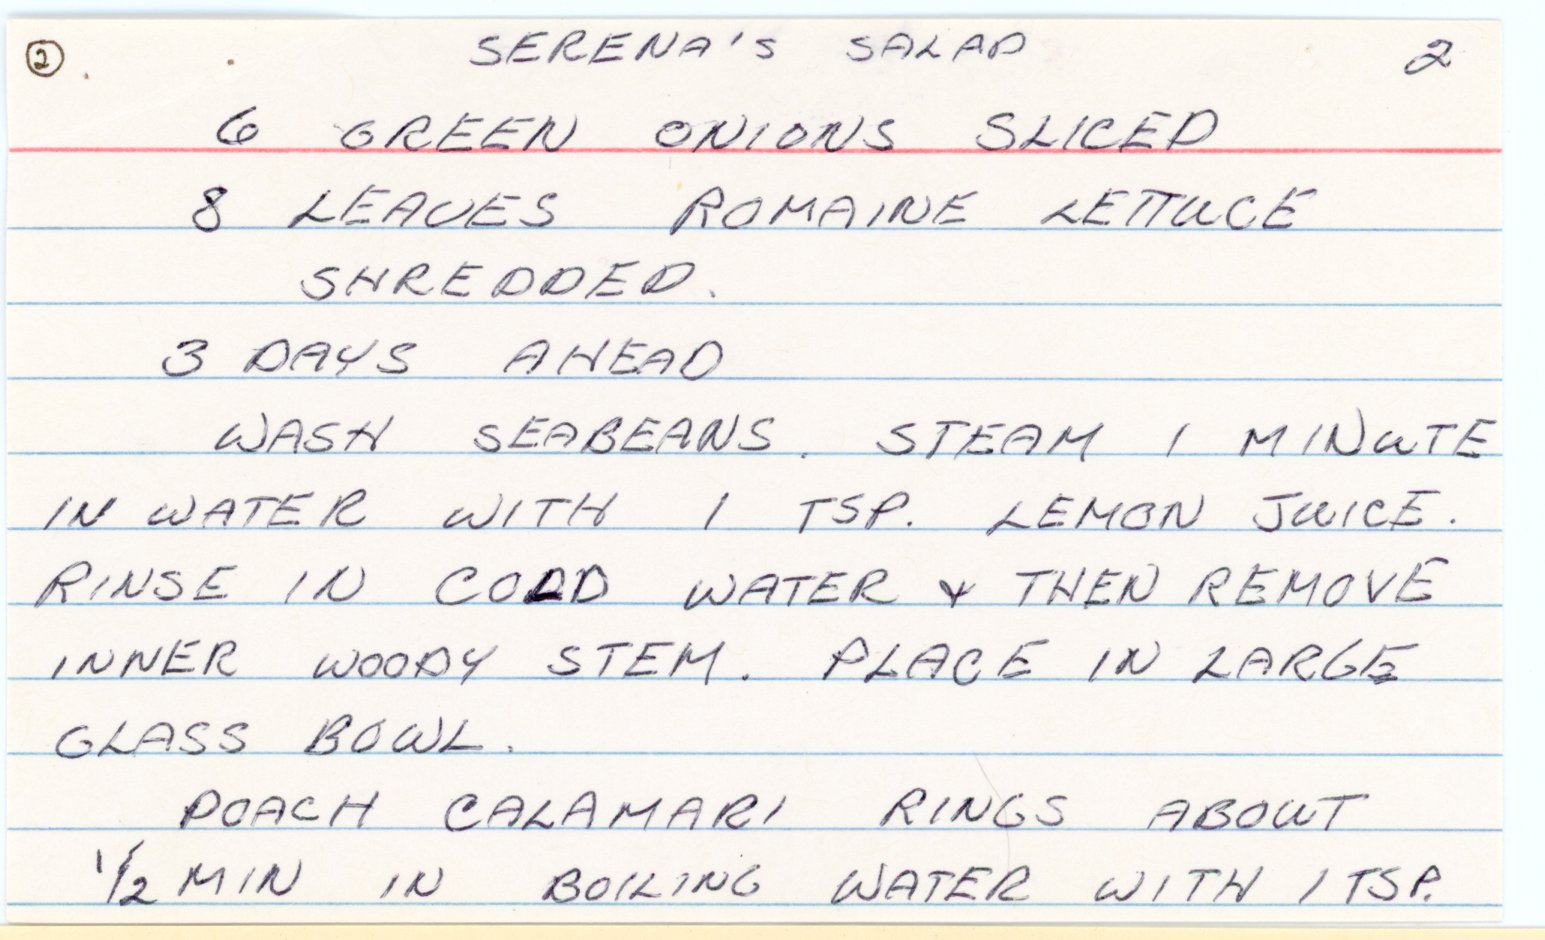 ② SERENA'S SALAD 2
6 GREEN ONIONS SLICED
8 LEAVES ROMAINE LETTUCE
SHREDDED.
3 DAYS AHEAD
WASH SEABEANS. STEAM 1 MINUTE
IN WATER WITH 1 TSP. LEMON JUICE.
RINSE IN COLD WATER & THEN REMOVE
INNER WOODY STEM. PLACE IN LARGE
GLASS BOWL.
POACH CALAMARI RINGS ABOUT
1/2 MIN IN BOILING WATER WITH 1 TSP.